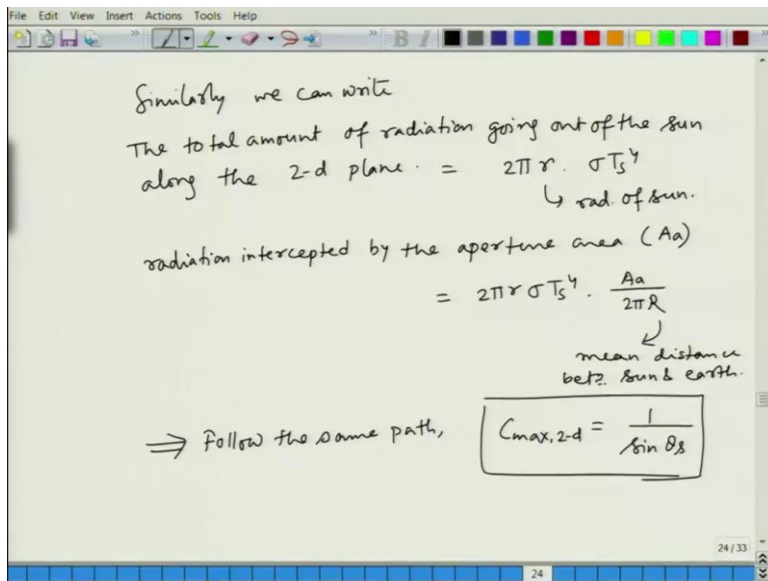 File Edit View Insert Actions Tools Help
Similarly we can write
The total amount of radiation going out of the sun
along the 2-d plane. = 2πr. σTs⁴
↳ rad. of sun.
radiation intercepted by the aperture area (Aa)
= 2πr σTs⁴. Aa/2πR
mean distance
betⁿ sun & earth.
⇒ Follow the same path, Cmax,2-d = 1/sin θs
24/33
24